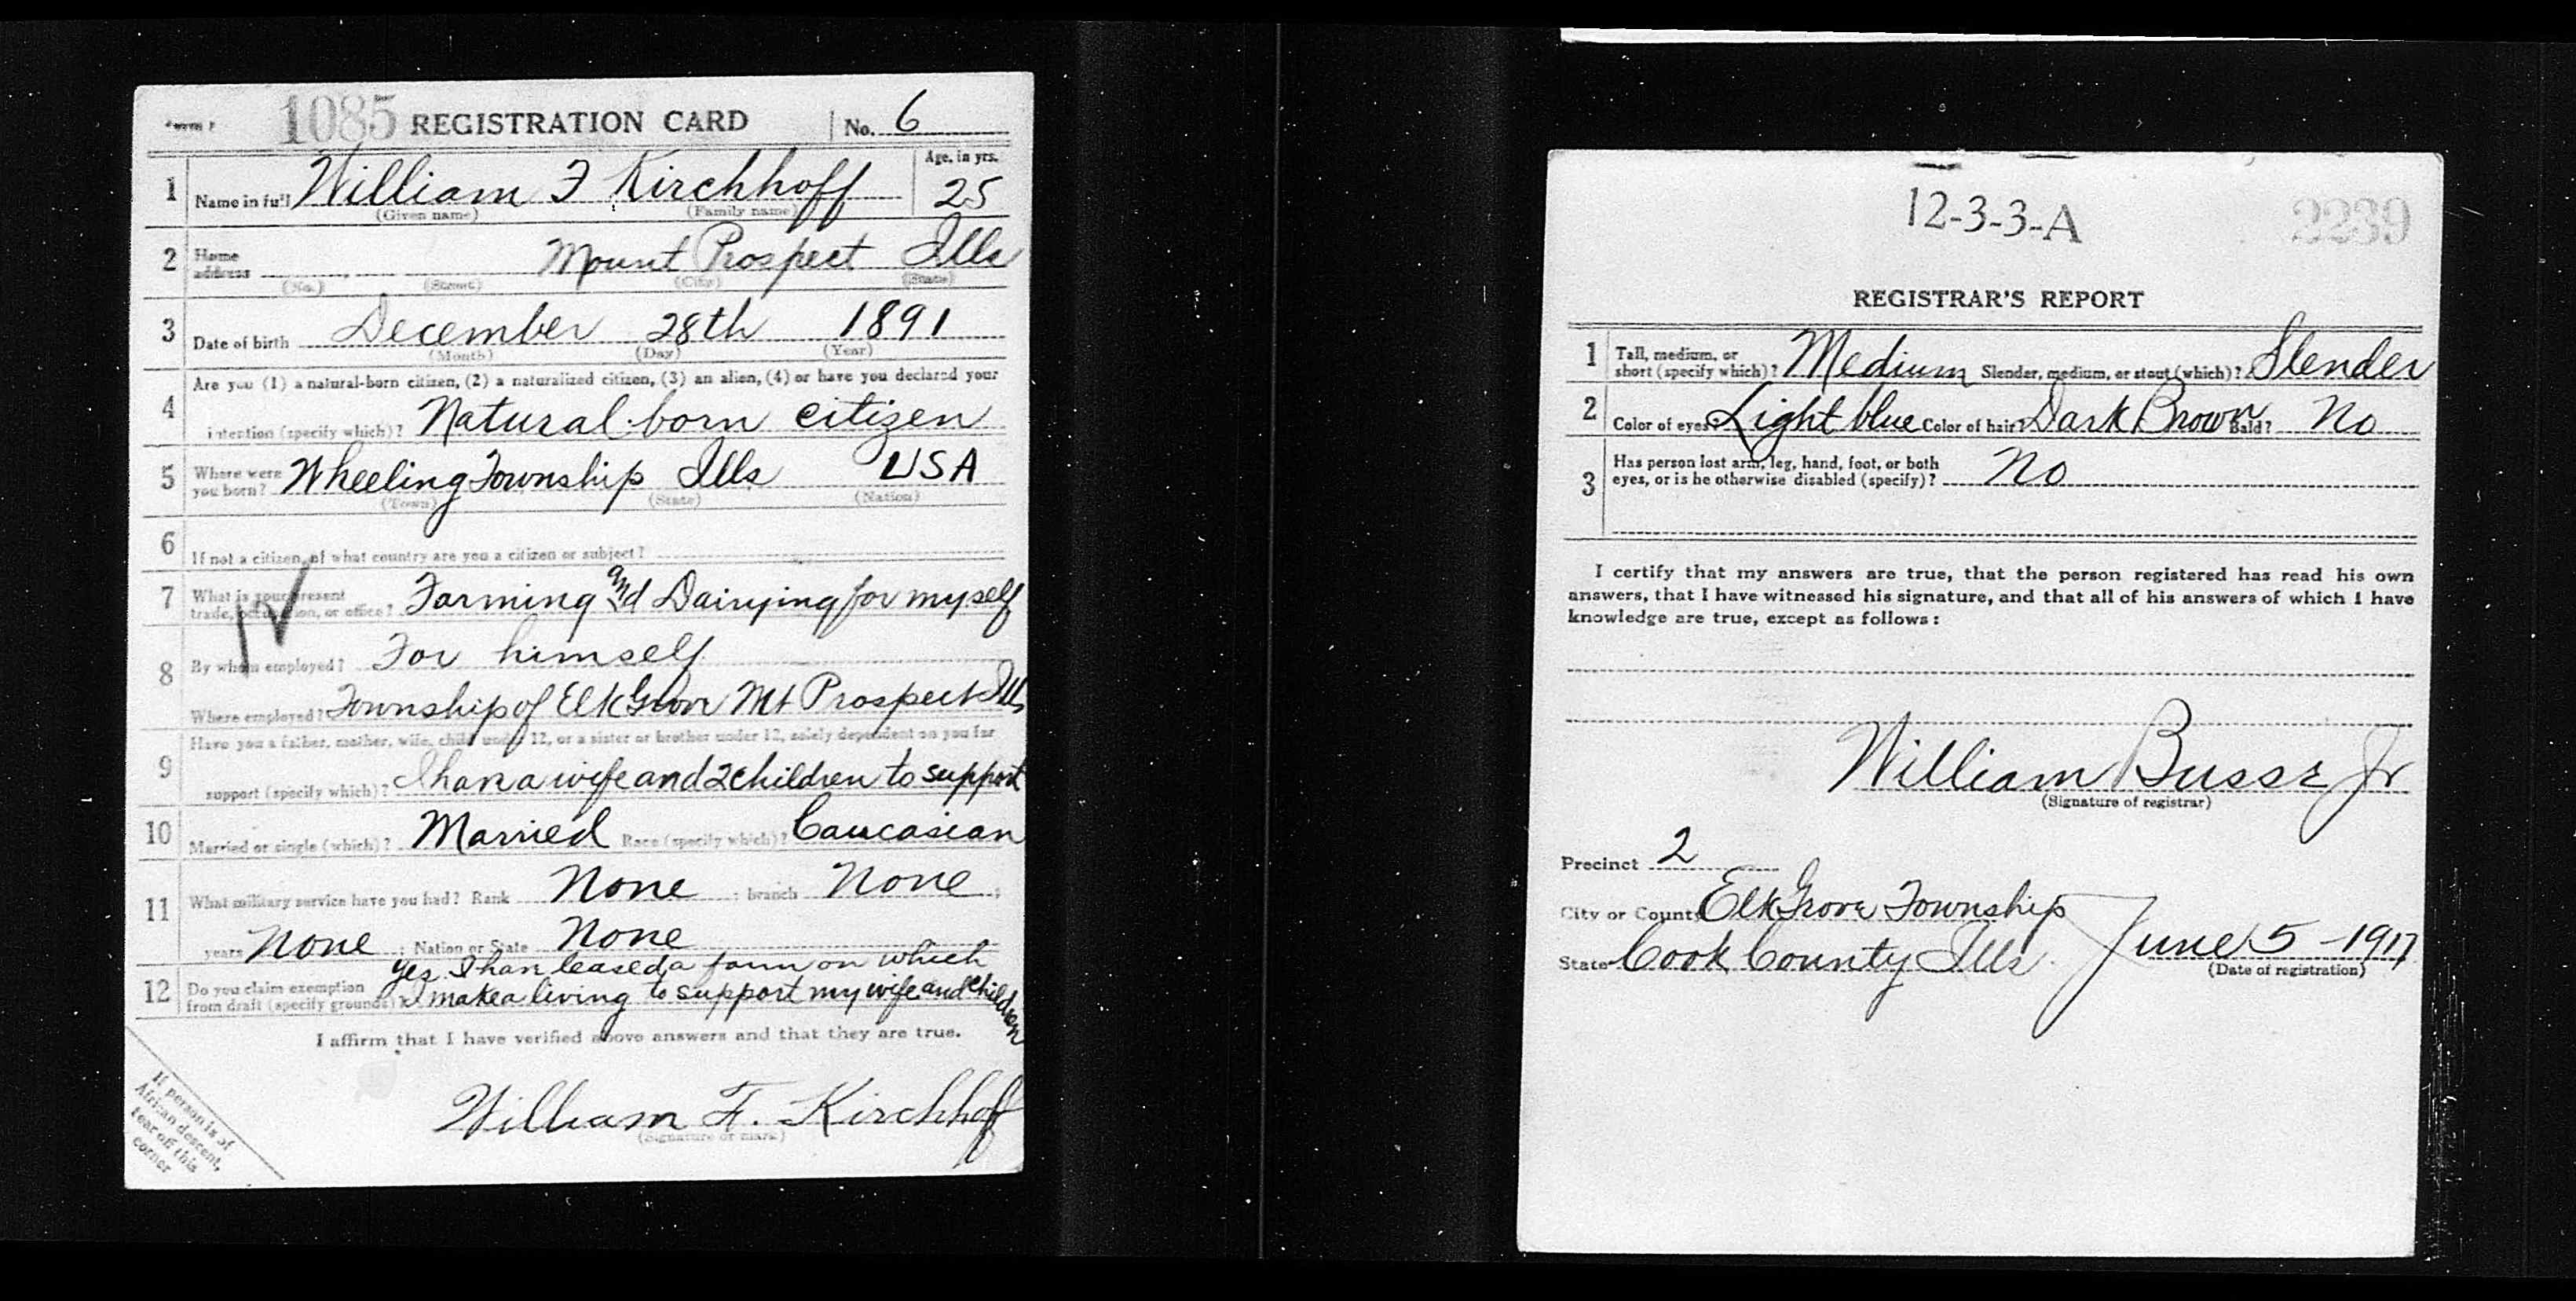 1085 REGISTRATION CARD No. 6
1 Name in full William F Kirchhoff Age, in yrs. 25
(Given name) (Family name)
2 Home address Mount Prospect Ills
(No.) (Street) (City) (State)
3 Date of birth December 28th 1891
(Month) (Day) (Year)
Are you (1) a natural-born citizen, (2) a naturalized citizen, (3) an alien, (4) or have you declared your
4 intention (specify which)? Natural-born citizen
5 Where were you born? Wheeling Township Ills USA
(Town) (State) (Nation)
6 If not a citizen, of what country are you a citizen or subject?
7 What is your present trade, occupation, or office? Farming and Dairying for myself
8 By whom employed? For himself
Where employed? Township of Elk Grove Mt Prospect Ills
Have you a father, mother, wife, child under 12, or a sister or brother under 12, solely dependent on you for
9 support (specify which)? I have a wife and 2 children to support
10 Married or single (which)? Married Race (specify which)? Caucasian
11 What military service have you had? Rank None ; branch None ;
years None ; Nation or State None
12 Do you claim exemption from draft (specify grounds)? Yes I have leased a farm on which
I make a living to support my wife and children
I affirm that I have verified above answers and that they are true.
William F. Kirchhoff
(Signature or mark)
If person is of
African descent,
tear off this
corner
12-3-3-A 2239
REGISTRAR'S REPORT
1 Tall, medium, or short (specify which)? Medium Slender, medium, or stout (which)? Slender
2 Color of eyes? Light blue Color of hair? Dark Brown Bald? No
3 Has person lost arm, leg, hand, foot, or both
eyes, or is he otherwise disabled (specify)? No
I certify that my answers are true, that the person registered has read his own
answers, that I have witnessed his signature, and that all of his answers of which I have
knowledge are true, except as follows:
William Busse Jr
(Signature of registrar)
Precinct 2
City or County Elk Grove Township
State Cook County Ills. June 5 - 1917
(Date of registration)